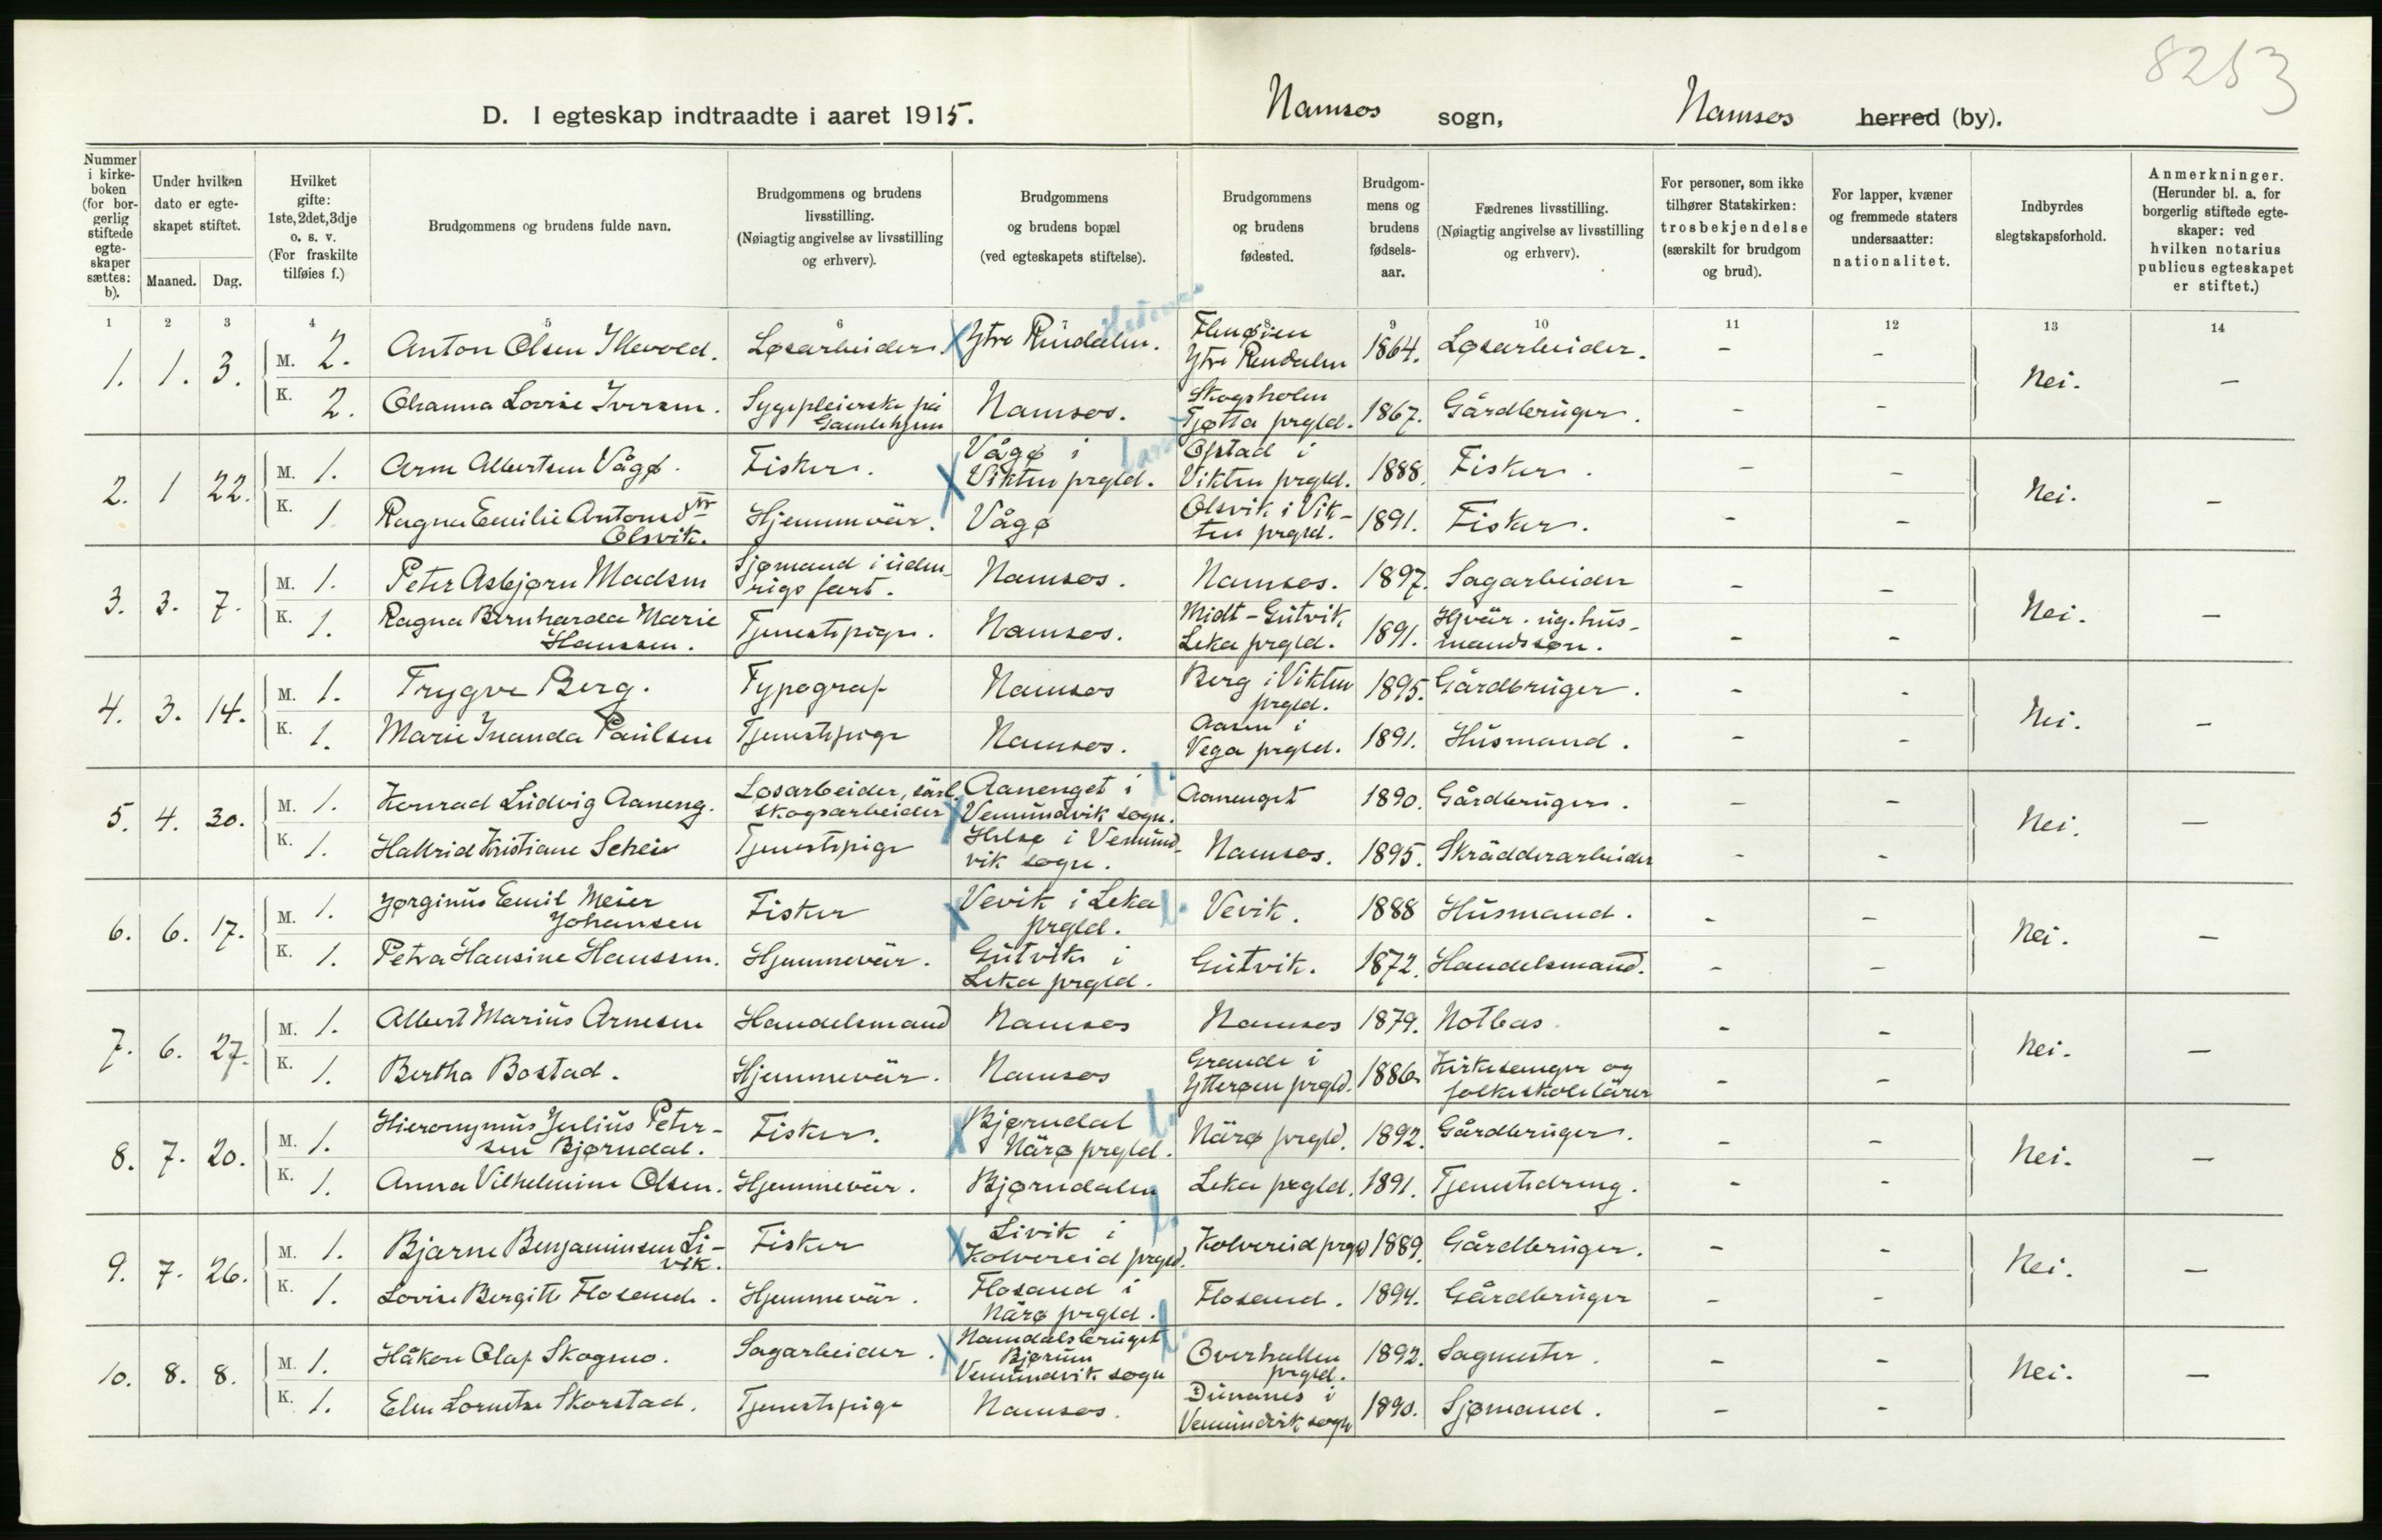 8253
D. I egteskap indtraadte i aaret 1915. Namsos sogn, Namsos herred (by).
Nummer i kirkeboken (for borgerlig stiftede egteskaper sættes: b).
Under hvilken dato er egteskapet stiftet.
Maaned. Dag.
Hvilket gifte: 1ste, 2det, 3dje o. s. v. (For fraskilte tilføies f.)
Brudgommens og brudens fulde navn.
Brudgommens og brudens livsstilling. (Nøiagtig angivelse av livsstilling og erhverv).
Brudgommens og brudens bopæl (ved egteskapets stiftelse).
Brudgommens og brudens fødested.
Brudgommens og brudens fødselsaar.
Fædrenes livsstilling. (Nøiagtig angivelse av livsstilling og erhverv).
For personer, som ikke tilhører Statskirken: trosbekjendelse (særskilt for brudgom og brud).
For lapper, kvæner og fremmede staters undersaatter: nationalitet.
Indbyrdes slegtskapsforhold.
Anmerkninger. (Herunder bl. a. for borgerlig stiftede egteskaper: ved hvilken notarius publicus egteskapet er stiftet.)
1 2 3 4 5 6 7 8 9 10 11 12 13 14
1. 1. 3. M. 2. Anton Olsen Illevold. Løsarbeider. Ytre Rendalen. Ytre Rendalen 1864. Løsarbeider. - - Nei. -
K. 2. Ohanna Lovise Iversen. Sygepleierske på Gamlehjem Namsos. Skogsholm Tjøtta prgld. 1867. Gårdbruger. - -
2. 1 22. M. 1. Arne Albertsen Vågø. Fisker. Vågø i Vikten prgld. Ofstad i Vikten prgld. 1888. Fisker. - - Nei. -
K. 1. Ragna Emilie Antonsdtr Olsvik. Hjemmevär. Vågø Olsvik i Vikten prgld. 1891. Fisker. - -
3. 3. 7. M. 1. Peter Asbjørn Madsen Sjømand i udenrigs fart. Namsos. Namsos. 1897. Sagarbeider - - Nei. -
K. 1. Ragna Bernharda Marie Hanssen. Tjenestepige. Namsos. Midt-Gutvik Leka prgld. 1891. Hjvär. ug. husmandssøn. - -
4. 3. 14. M. 1. Trygve Berg. Typograf Namsos Berg i Vikten prgld. 1895. Gårdbruger. - - Nei. -
K. 1. Marie Inanda Paulsen Tjenestepige Namsos. Aasen i Vega prgld. 1891. Husmand. - -
5. 4. 30. M. 1. Konrad Ludvig Aaneng. Løsarbeider, särl. skogsarbeider Aanenget i Vemundvik sogn. Aanenget 1890. Gårdbruger. - - Nei. -
K. 1. Hallrid Kristiane Scheie Tjenestepige i Vemundvik sogn. Namsos. 1895. Skrädderarbeider - -
6. 6. 17. M. 1. Jørginus Emil Meier Johansen Fisker Vevik i Leka prgld. Vevik. 1888 Husmand. - - Nei. -
K. 1. Petra Hansine Hanssen. Hjemmevär. Gutvik i Leka prgld. Gutvik. 1872. Handelsmand. - -
7. 6. 27. M. 1. Albert Marius Arnesen Handelsmand Namsos Namsos 1879. Notbas - - Nei. -
K. 1. Bertha Bostad. Hjemmevär. Namsos Grande i Ytterøen prgld. 1886. Kirkesanger og folkeskolelärer - -
8. 7. 20. M. 1. Hieronymus Julius Petersen Bjørndal. Fisker. Bjørndal Närø prgld. Närø prgld. 1892. Gårdbruger. - - Nei. -
K. 1. Anna Vilhelmine Olsen. Hjemmevär. Bjørndalen Leka prgld. 1891. Tjenestedreng. - -
9. 7. 26. M. 1. Bjarne Benjaminsen Livik. Fisker Livik i Kolvereid prgld. Kolvereid prgld 1889. Gårdbruger. - - Nei. -
K. 1. Lovise Bergitte Flosand. Hjemmevär. Flosand i Närø prgld. Flosand. 1894. Gårdbruger - -
10. 8. 8. M. 1. Håkon Olaf Skogmo. Sagarbeider. Namdalsbruget Bjørum Vemundvik sogn Overhallen prgld. 1892. Sagmester. - - Nei. -
K. 1. Elen Lornetse Skorstad. Tjenestepige Namsos. Dunanes i Vemundvik sogn 1890. Sjømand. - -